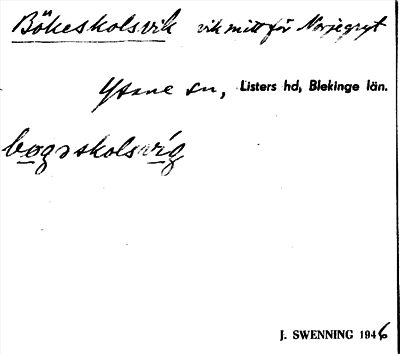 Bökeskolsvik vik mitt för Norjegryt
Ysane sn, Listers hd, Blekinge län.
bøgəskolsvíg
J. SWENNING 1946